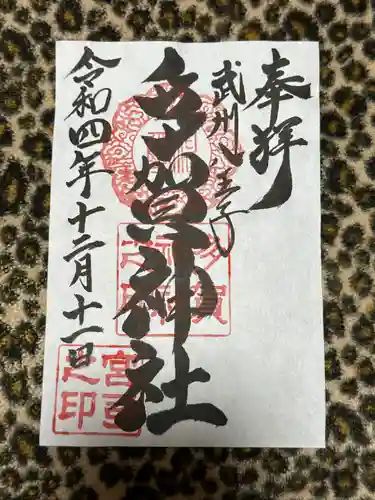 奉拝
武州八王子
多賀神社
令和四年十二月十一日
多賀神社之印
宮司之印